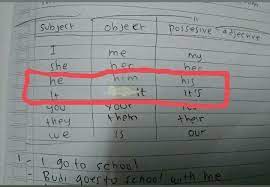 Subject object possesive adjective
I me my
she her her
he him his
It it it's
you your
they them their
we is our
1 - I go to school
- Budi goes to school with me